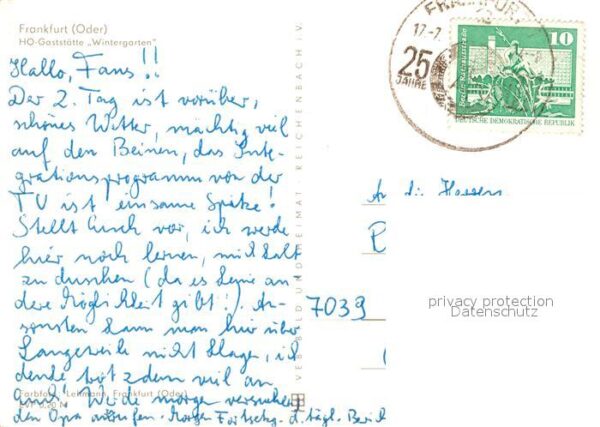 Frankfurt (Oder)
HO-Gaststätte „Wintergarten"
Hallo, Fans!!
Der 2. Tag ist vorüber,
schönes Wetter, mächtig viel
auf den Beinen, das Inte-
grationsprogramm von der
TV ist einsame Spitze!
Stellt Euch vor, ich werde
hier noch lernen, mich kalt
zu duschen (da es keine an
dere Möglichkeit gibt!). An-
sonsten kann man hier über
Langeweile nicht klagen, ich
denke trotzdem viel an
Euch! Werde morgen versuchen
den Opa anzurufen. Morgen Fortsetzg. d. tägl. Berich
Farbfoto: Lehmann, Frankfurt (Oder)
VEB BILD UND HEIMAT REICHENBACH i. V.
FRANKFURT
17.-7.
25
JAHRE
10
DEUTSCHE DEMOKRATISCHE REPUBLIK
An die Herren
7039
privacy protection
Datenschutz